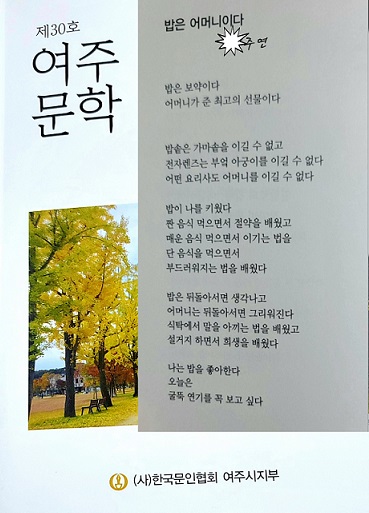 제30호
여주
문학
밥은 어머니이다
주 연
밥은 보약이다
어머니가 준 최고의 선물이다
밥솥은 가마솥을 이길 수 없고
전자렌즈는 부엌 아궁이를 이길 수 없다
어떤 요리사도 어머니를 이길 수 없다
밥이 나를 키웠다
짠 음식 먹으면서 절약을 배웠고
매운 음식 먹으면서 이기는 법을
단 음식을 먹으면서
부드러워지는 법을 배웠다
밥은 뒤돌아서면 생각나고
어머니는 뒤돌아서면 그리워진다
식탁에서 말을 아끼는 법을 배웠고
설거지 하면서 희생을 배웠다
나는 밥을 좋아한다
오늘은
굴뚝 연기를 꼭 보고 싶다
(사)한국문인협회 여주시지부